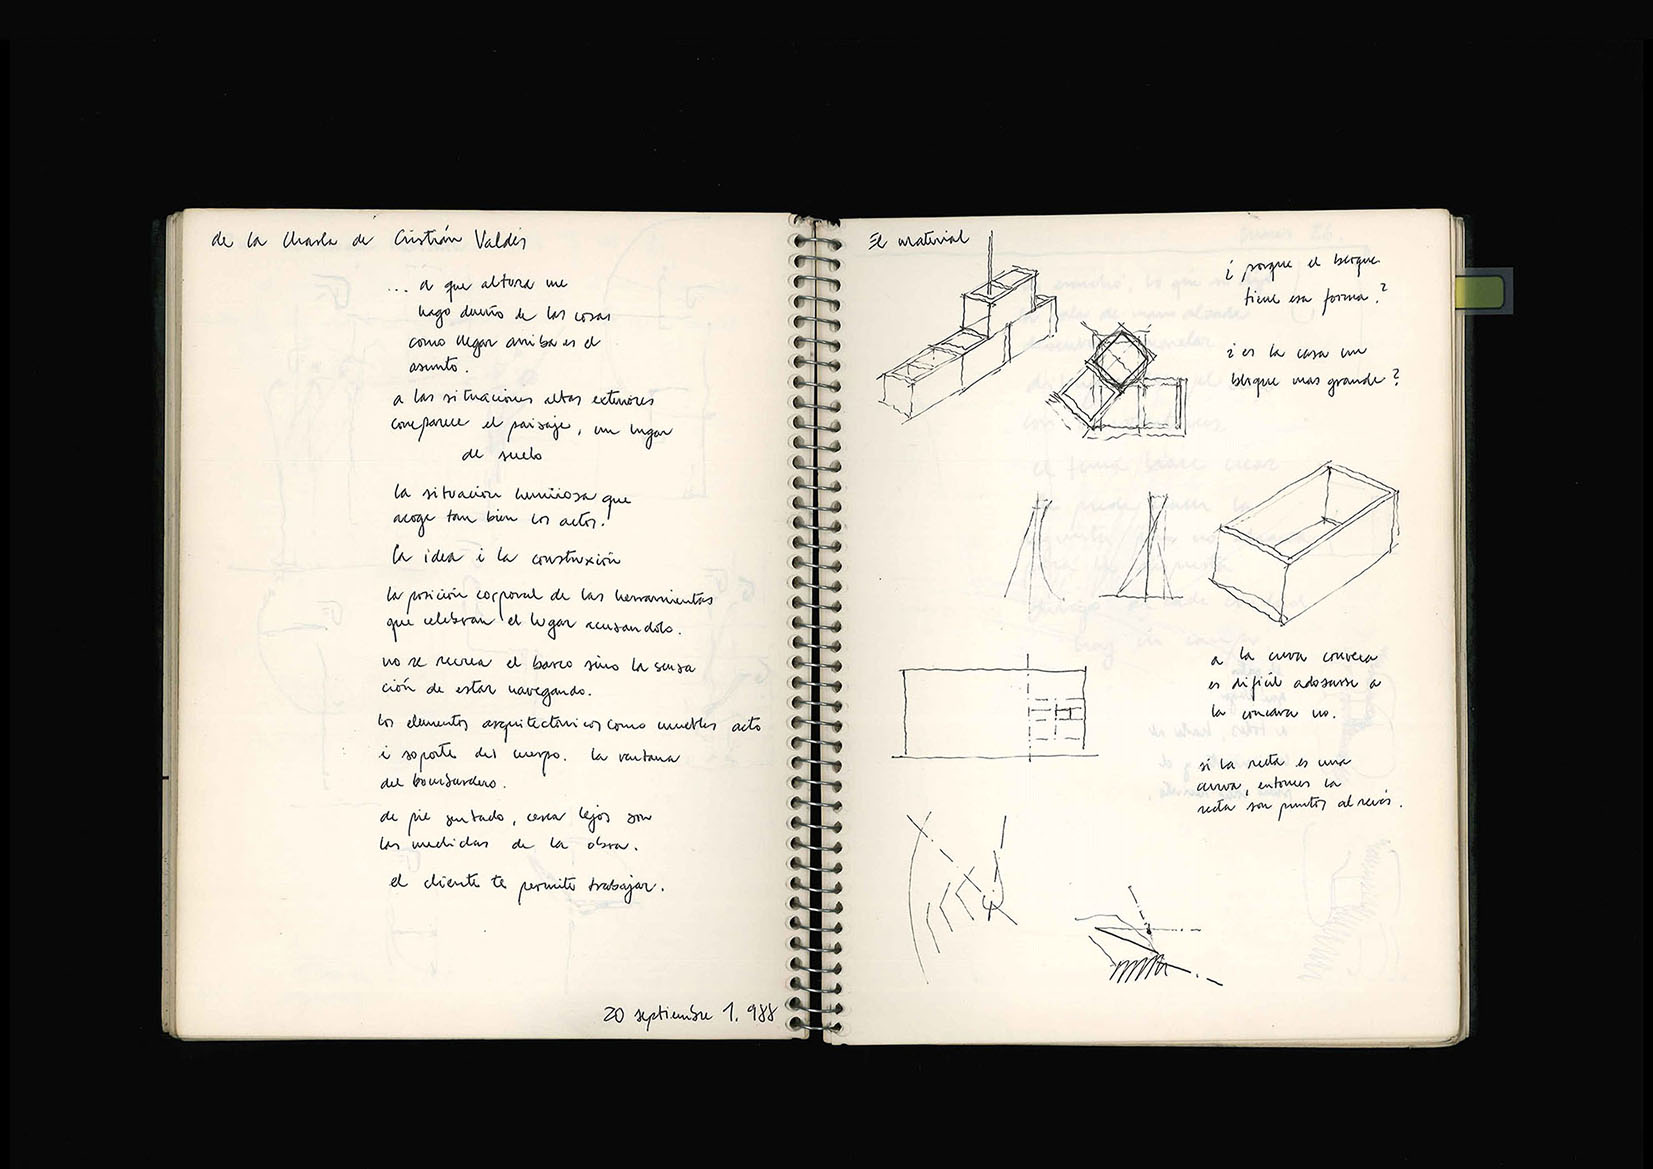 de la charla de Cristián Valdés
... a que altura me
hago dueño de las cosas
como llegar arriba es el
asunto.
a las situaciones altas exteriores
comparece el paisaje, un lugar
de suelo
la situación luminosa que
acoge tan bien los actos.
la idea i la construxión
la posición corporal de las herramientas
que celebran el lugar acusandolo.
no se recrea el barco sino la sensa
ción de estar navegando.
los elementos arquitectónicos como muebles acto
i soporte del cuerpo. la ventana
del bombardero.
de pie sentado, cerca lejos son
las medidas de la obra.
el cliente te permite trabajar.
20 septiembre 1.988
El material
¿ porque el bloque
tiene esa forma ?
¿ es la casa un
bloque mas grande ?
a la curva convexa
es difícil adosarse a
la concava no.
si la recta es una
curva, entonces la
recta son puntos al revés.